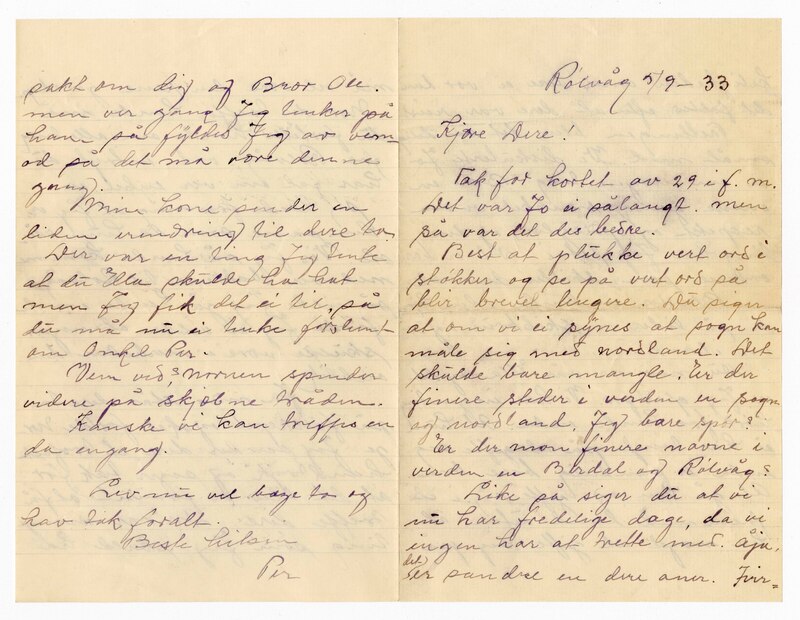 Rølvåg 5/9 – 33
Kjære Dere!
Tak for kortet av 29 i f. m.
Det var Jo ei så langt. men
så var det des bedre.
Best at plukke vert ord i
støkker og se på vert ord så
blir brevet lengere. Du siger
at om vi ei synes at sogn kan
måle sig med nordland. Det
skulde bare mangle. Er der
finere steder i verden en sogn
og nordland, Jeg bare spør?
Er der mon finere navne i
verden en Berdal og Rølvåg?
Like så siger du at vi
nu har fredelige dage, da vi
ingen har at trette med. Åja,
det er sandere en dere aner. Firr=
sakt om dig og Bror Ole.
men ver gang Jeg tenker på
ham så fyldes Jeg av vem-
od så det må være denne
gang.
Mine kone sender en
liden erendring til dere to.
Der var en ting Jeg tenkte
at du Ella skulde ha hat
men Jeg fik det ei til, så
du må nu ei tenke forslemt
om Onkel Per.
Vem ved? nornen spinder
videre på skjebne tråden.
Kanske vi kan treffes en
da engang.
Lev nu vel begge to og
hav tak for alt.
Beste hilsen
Per